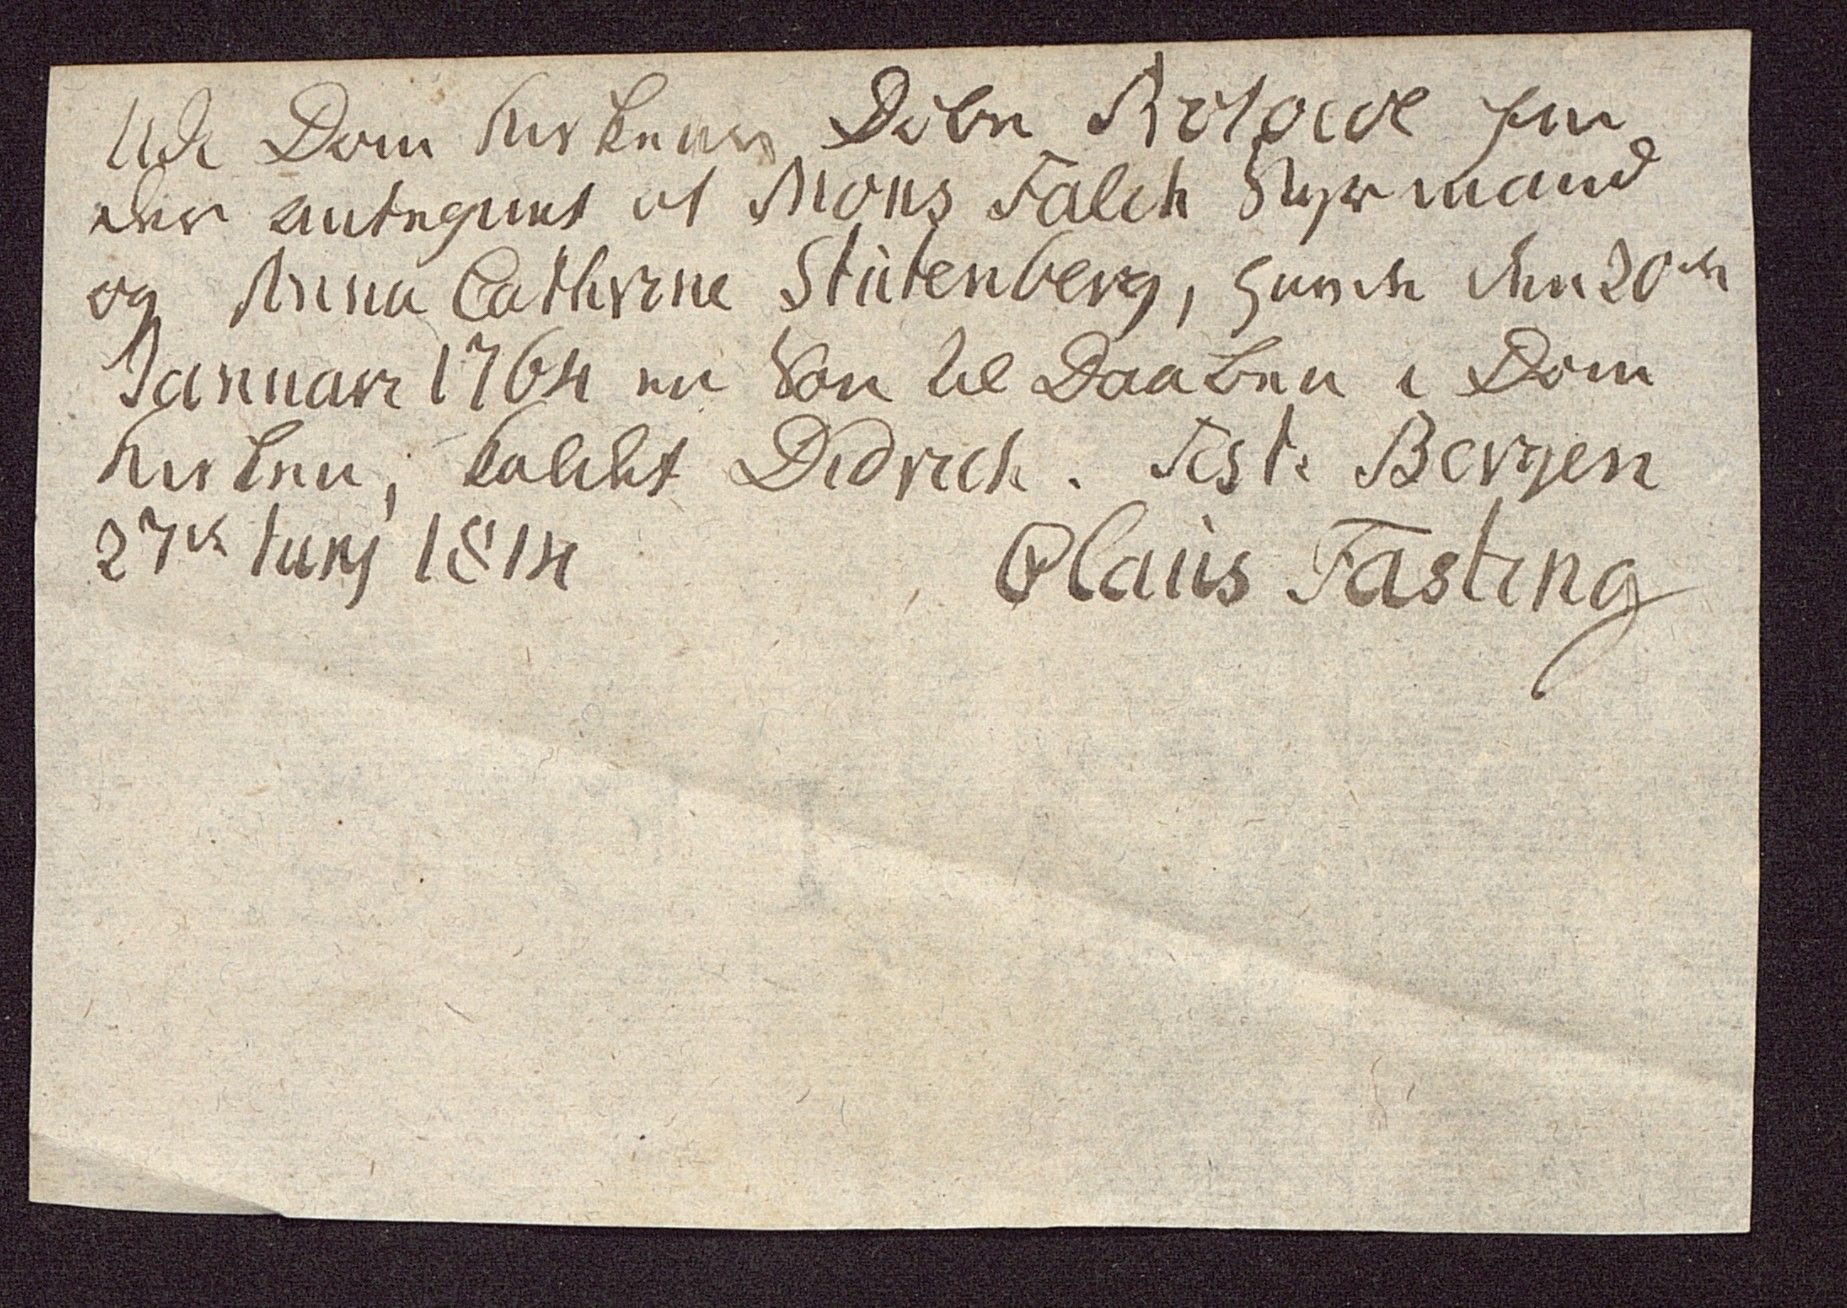 Udi Dom Kirkens Døbe Rotocol fin
des antegnet at Mons Falch Styrmand
og Anna Cathrine Stütenberg, havde den 20de
Januari 1764 en Søn til Daaben i Dom
Kirken, kaldet Didrich. Teste Bergen
27de Junj 1814 Olaus Fasting